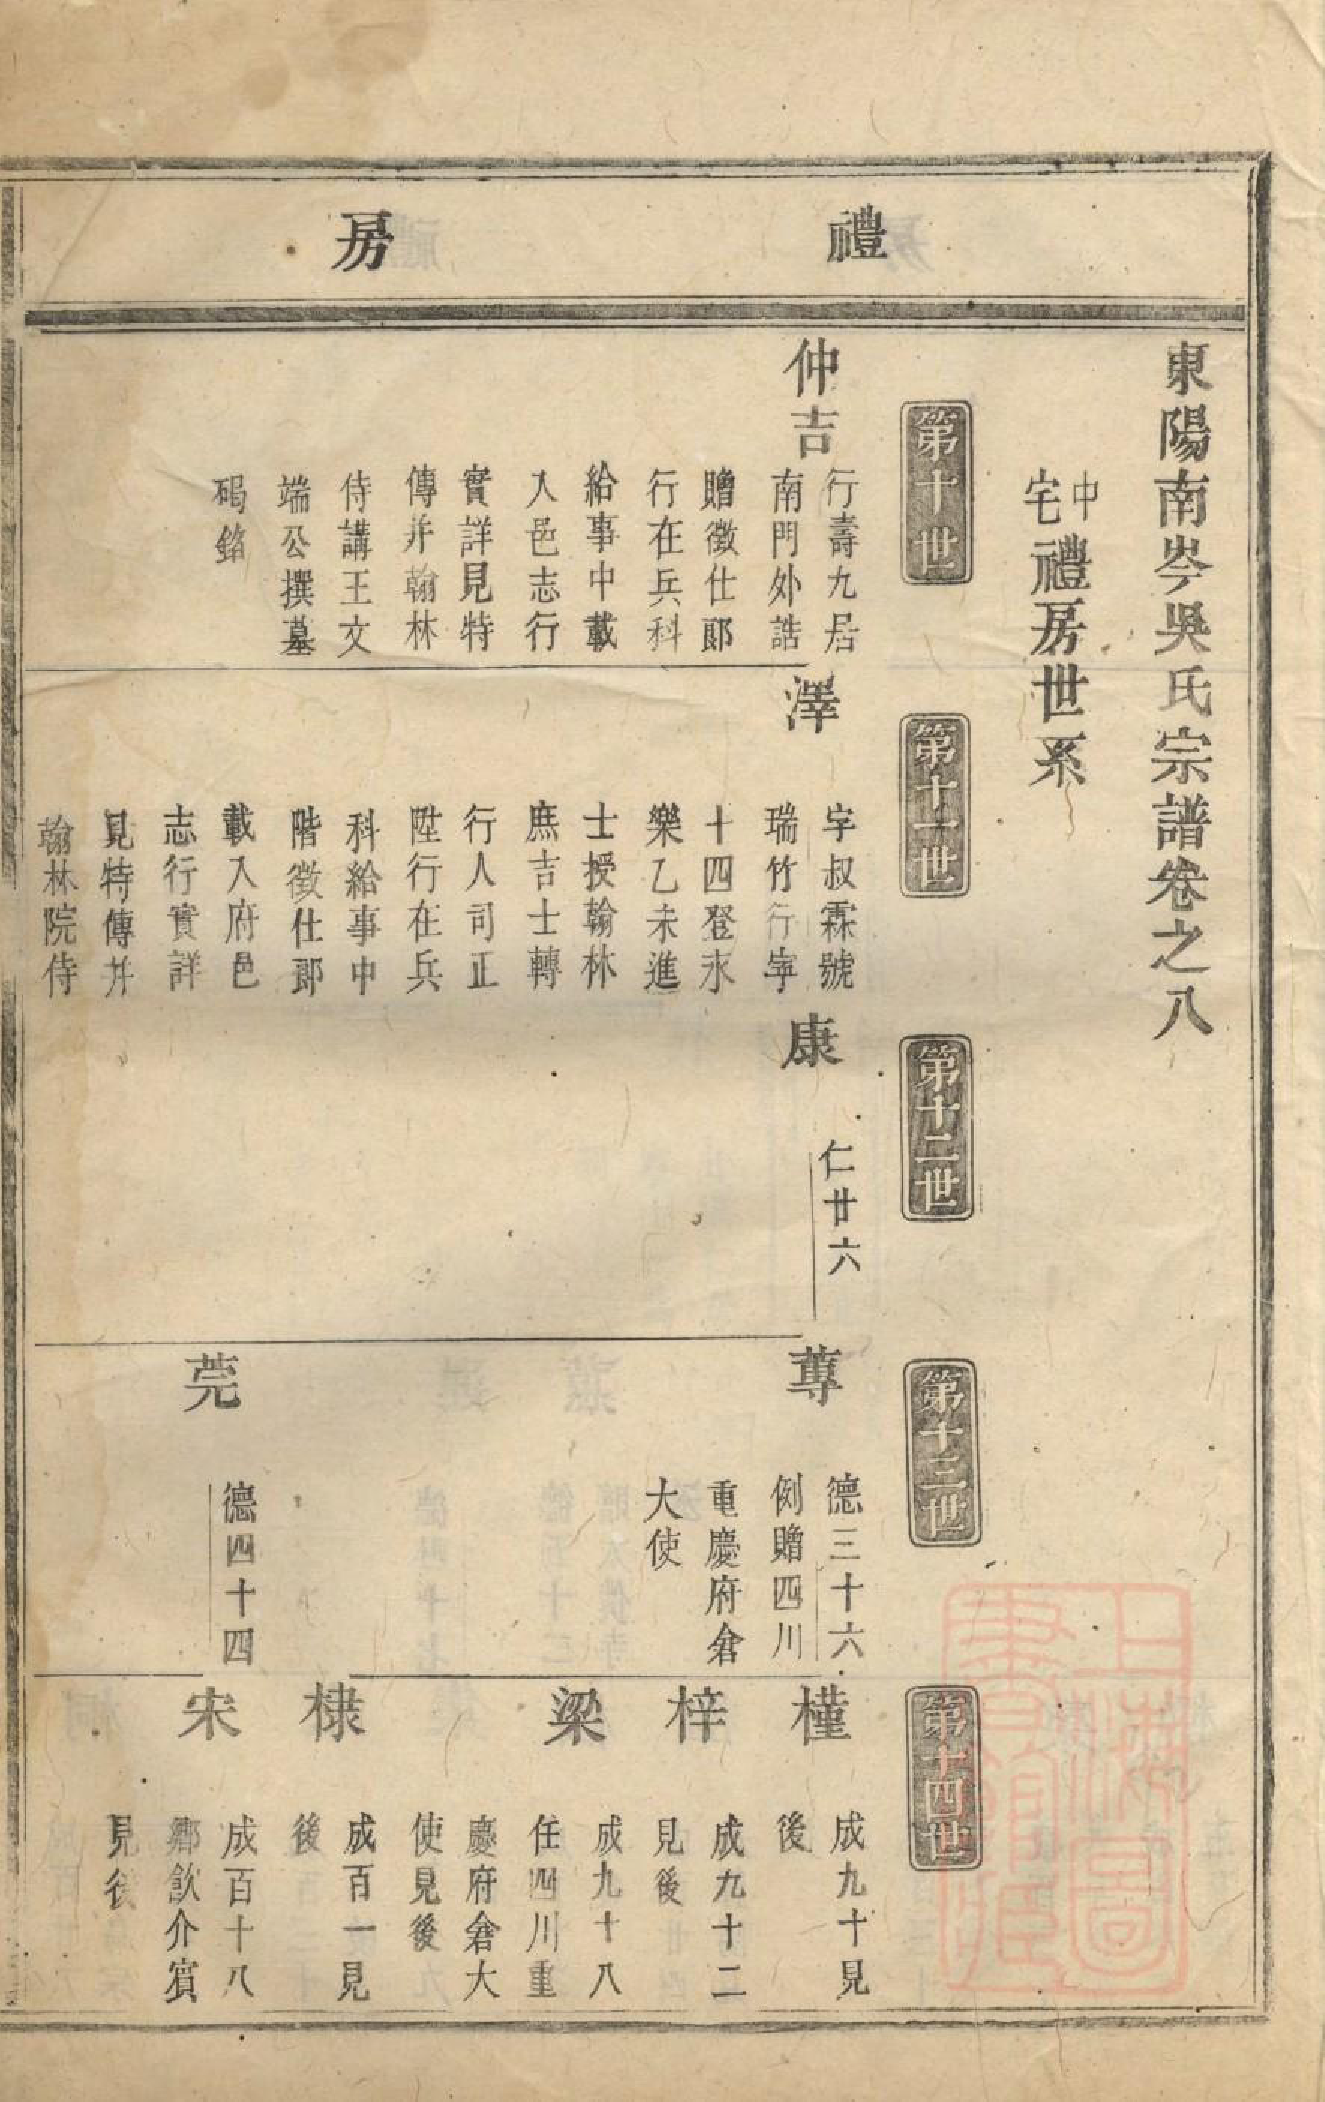 禮房
東陽南岑吳氏宗譜卷之八
中宅禮房世系
第十世
仲吉
行壽九居
南門外誥
贈徵仕郎
行在兵科
給事中載
入邑志行
實詳見特
傳并翰林
侍講王文
端公撰墓
碣銘
第十一世
澤
字叔霖號
瑞竹行寧
十四登永
樂乙未進
士授翰林
庶吉士轉
行人司正
陞行在兵
科給事中
階徵仕郎
載入府邑
志行實詳
見特傳并
翰林院侍
第十二世
康
仁廿六
第十三世
蓴
德三十六
例贈四川
重慶府倉
大使
莞
德四十四
第十四世
槿
成九十見
後
梓
成九十二
見後
梁
成九十八
任四川重
慶府倉大
使見後
棣
成百一見
後
宋
成百十八
鄉飲介賓
見後
上海圖書館藏